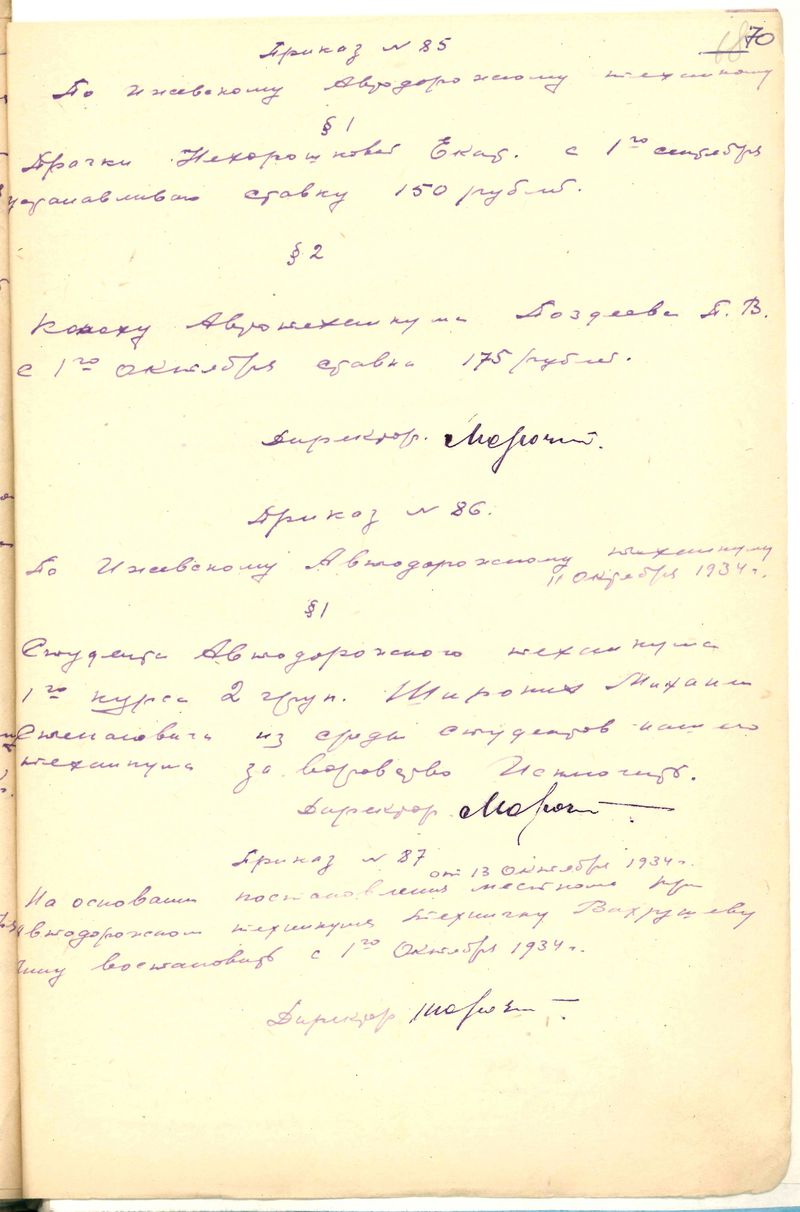 70
Приказ N 85
По Ижевскому Автодорожному техникому
§ 1
Прачки Нехорошковой Екат. с 1го сентября
устанавливаю ставку 150 рублей.
§ 2
Конюху Автотехникума Поздеева П. В.
с 1го Октября ставка 175 рублей.
Директор.
Приказ N 86.
По Ижевскому Автодорожному техникуму
11 Октября 1934 г.
§ 1
Студента Автодорожного техникума
1го курса 2 груп. Широких Михаил
Степановича из среды студентов нашего
техникума за воровство Исключить.
Директор
Приказ N 87
от 13 Октября 1934 г.
На основании постановления месткома при
автодорожном техникуме техничку Вахрушеву
востановить с 1го Октября 1934 г.
Директор